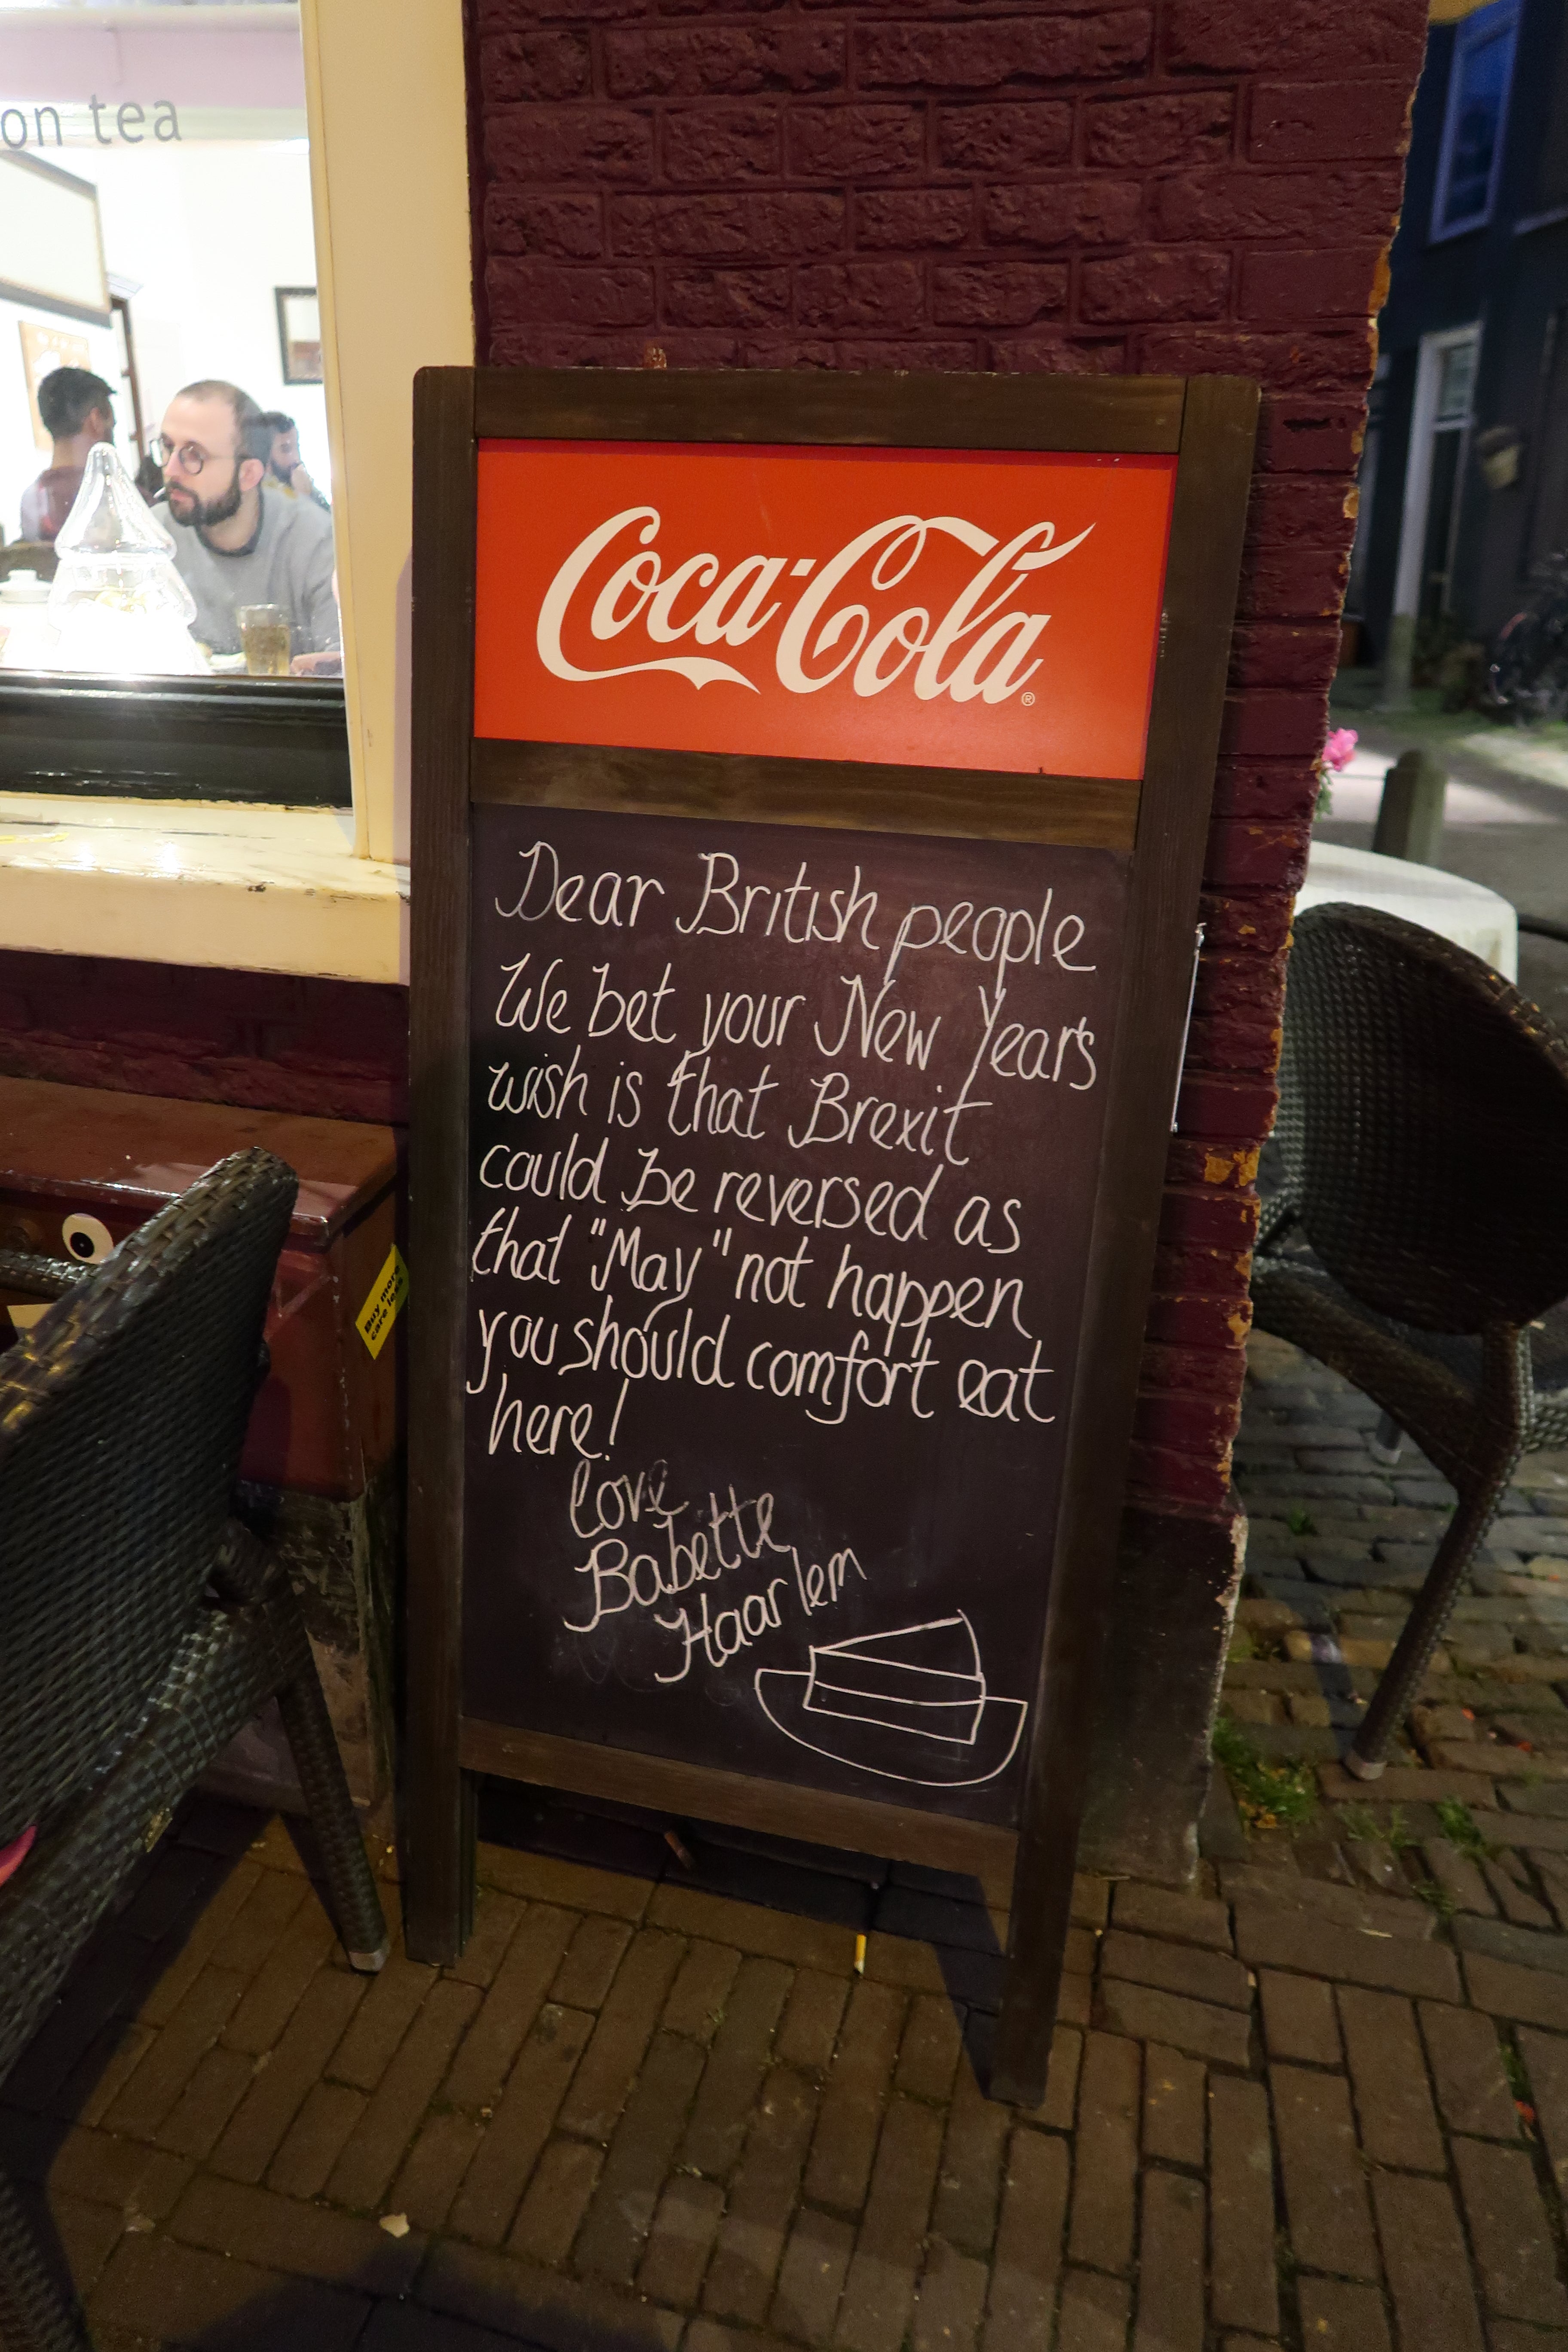 on tea
Coca-Cola
®
Dear British people
We bet your New Year's
wish is that Brexit
could be reversed as
that "May" not happen
you should comfort eat
here!
love
Babette
Haarlem
Buy more
care less